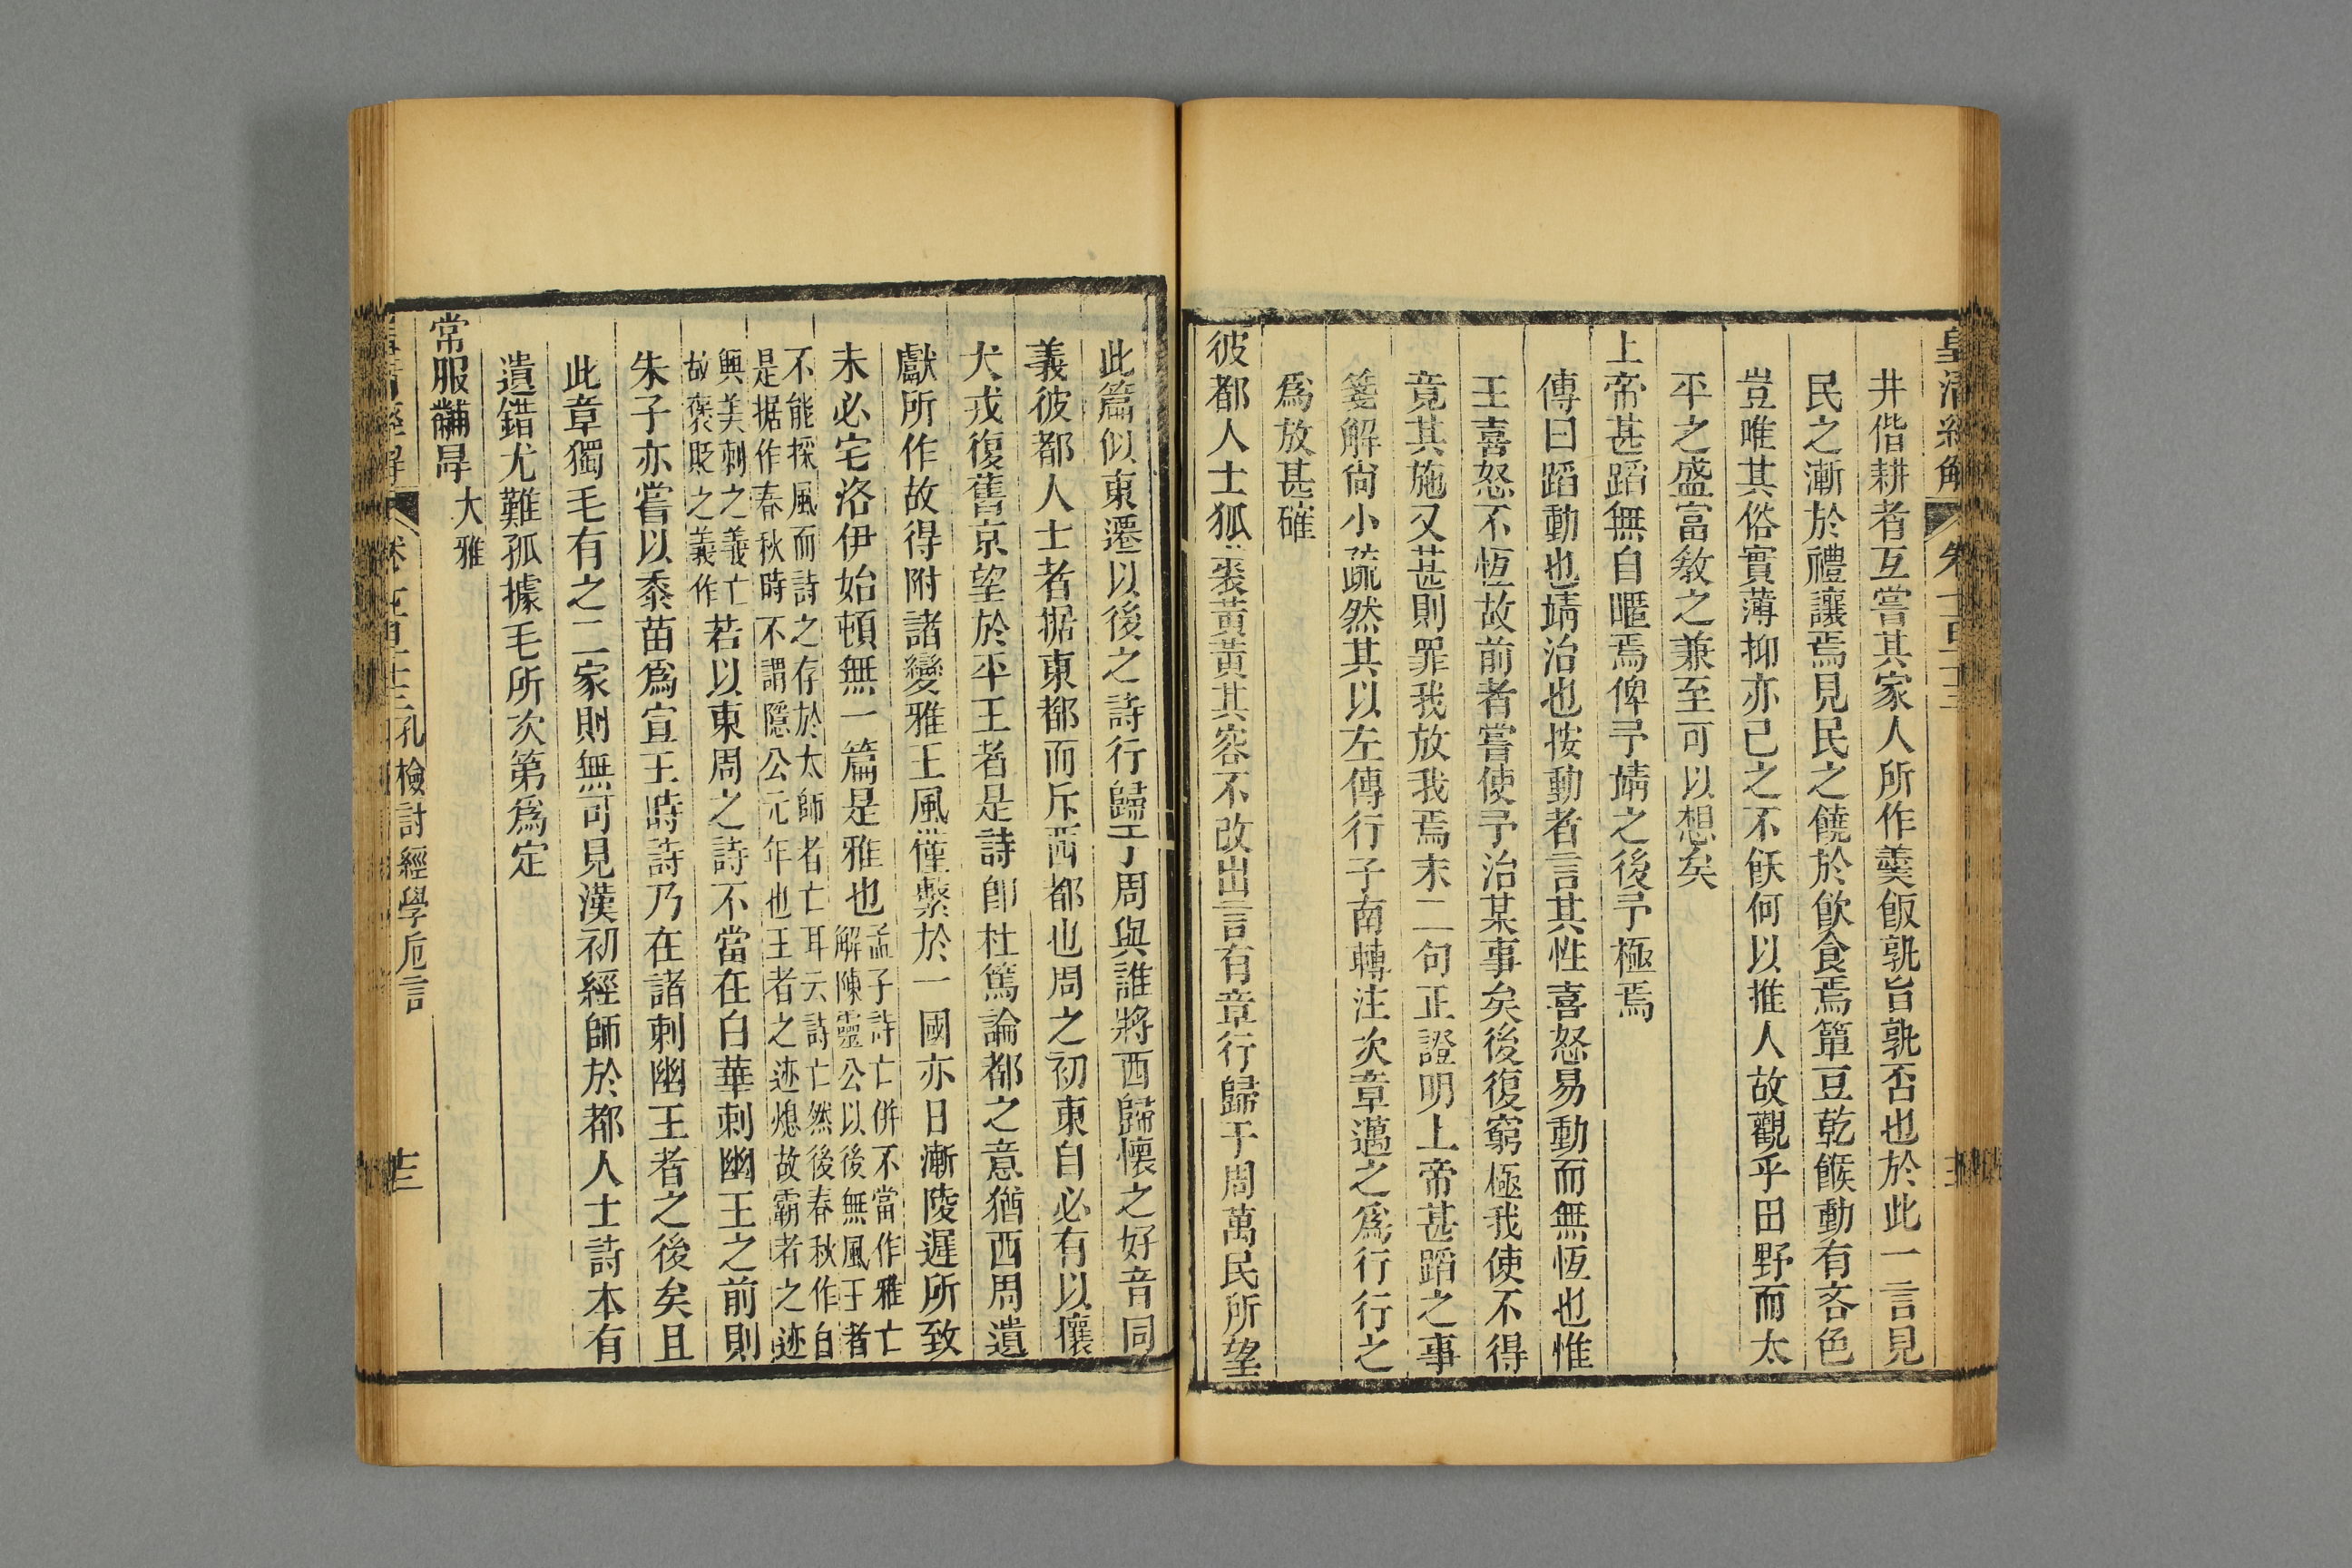 皇清經解 卷七百十三
井偕耕者互嘗其家人所作羹飯孰旨孰否也於此一言見
民之漸於禮讓焉見民之饒於飲食焉簞豆乾餱動有吝色
豈唯其俗實薄抑亦己之不飫何以推人故觀乎田野而太
平之盛富教之兼至可以想矣
上帝甚蹈無自暱焉俾予靖之後予極焉
傳曰蹈動也靖治也按動者言其性喜怒易動而無恆也惟
王喜怒不恆故前者嘗使予治某事矣後復窮極我使不得
竟其施又甚則罪我放我焉末二句正證明上帝甚蹈之事
箋解尚小疏然其以左傳行子南轉注次章邁之為行行之
為放甚確
彼都人士狐裘黃黃其容不改出言有章行歸于周萬民所望
此篇似東遷以後之詩行歸于周與誰將西歸懷之好音同
義彼都人士者据東都而斥西都也周之初東自必有以儴
犬戎復舊京望於平王者是詩卽杜篤論都之意猶西周遺
獻所作故得附諸變雅王風僅繫於一國亦日漸陵遲所致
未必宅洛伊始頓無一篇是雅也孟子詩亡併不當作雅亡
解陳靈公以後無風于者
不能採風而詩之存於太師者亡耳云詩亡然後春秋作自
是据作春秋時不謂隱公元年也王者之迹熄故霸者之迹
興美刺之義亡
故褒貶之義作若以東周之詩不當在白華刺幽王之前則
朱子亦嘗以黍苗為宣王時詩乃在諸刺幽王者之後矣且
此章獨毛有之二家則無可見漢初經師於都人士詩本有
遺錯尤難孤據毛所次第為定
常服黼冔大雅
皇清經解 卷七百十三 孔檢討經學卮言 十三